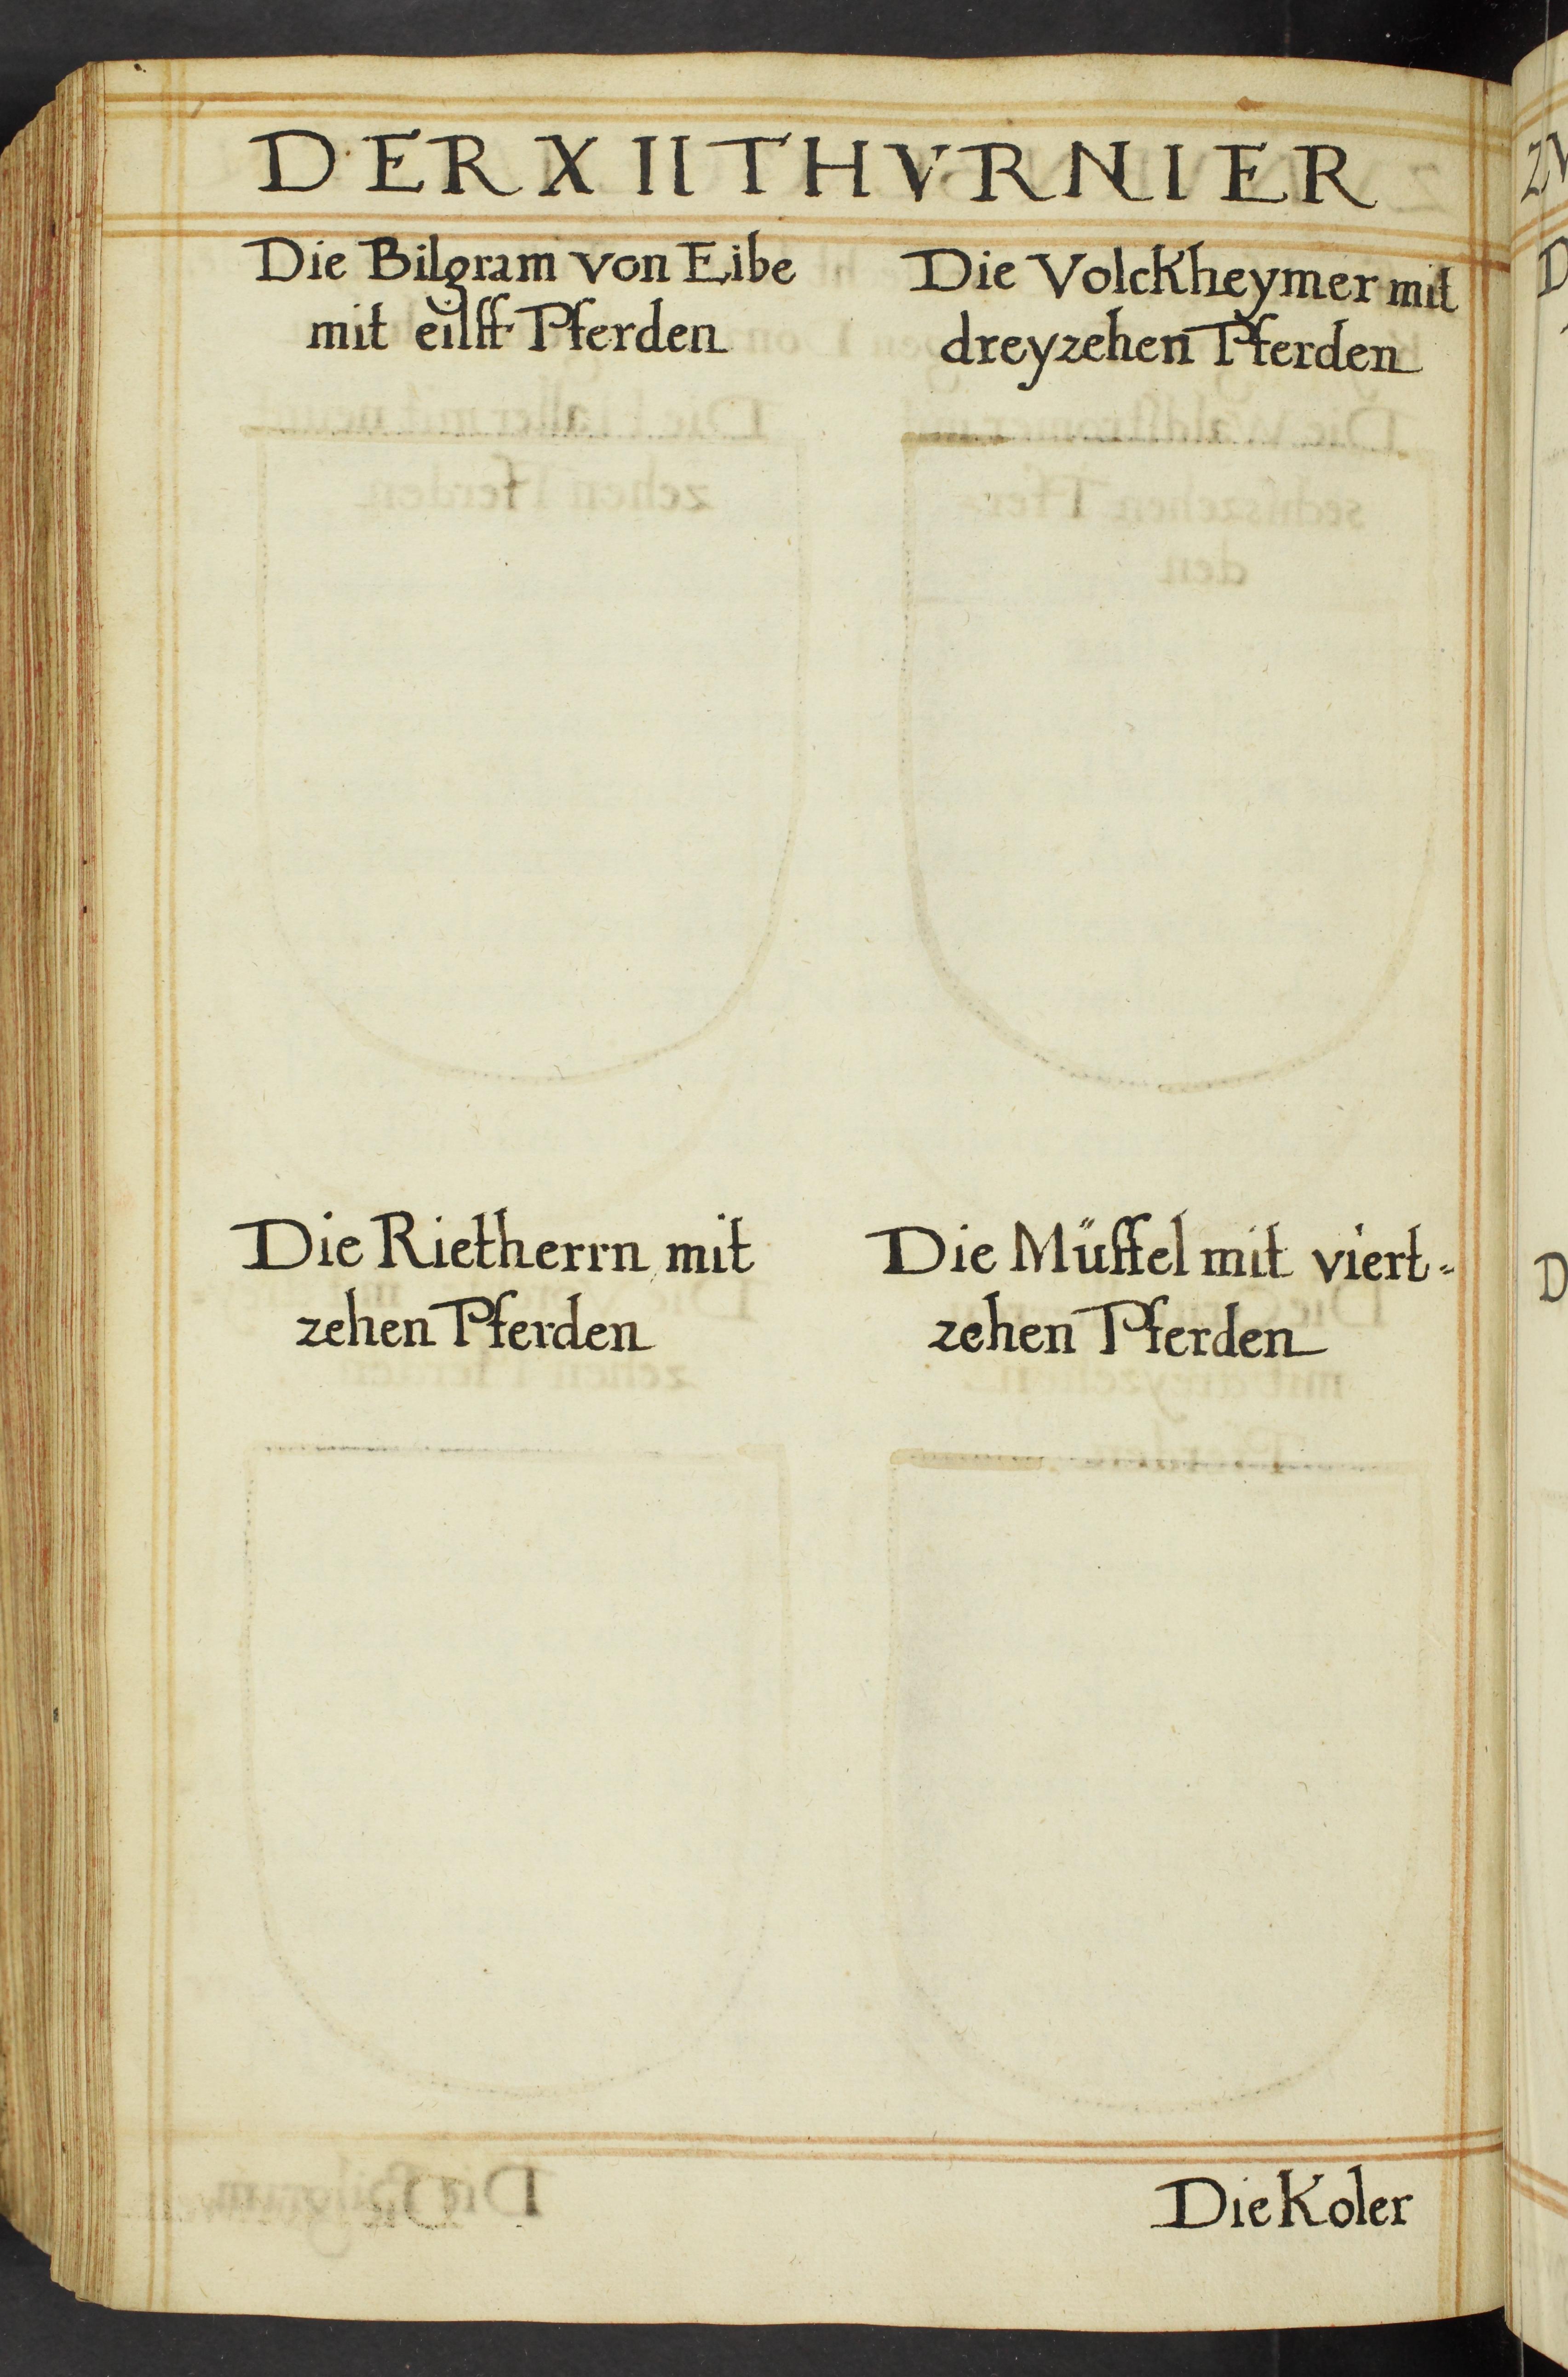 DER XII THVRNIER
Die Bilgram von Eibe
mit eilff Pferden
Die Volckheymer mit
dreyzehen Pferden
Die Rietherrn mit
zehen Pferden
Die Müffel mit viert=
zehen Pferden
Die Koler